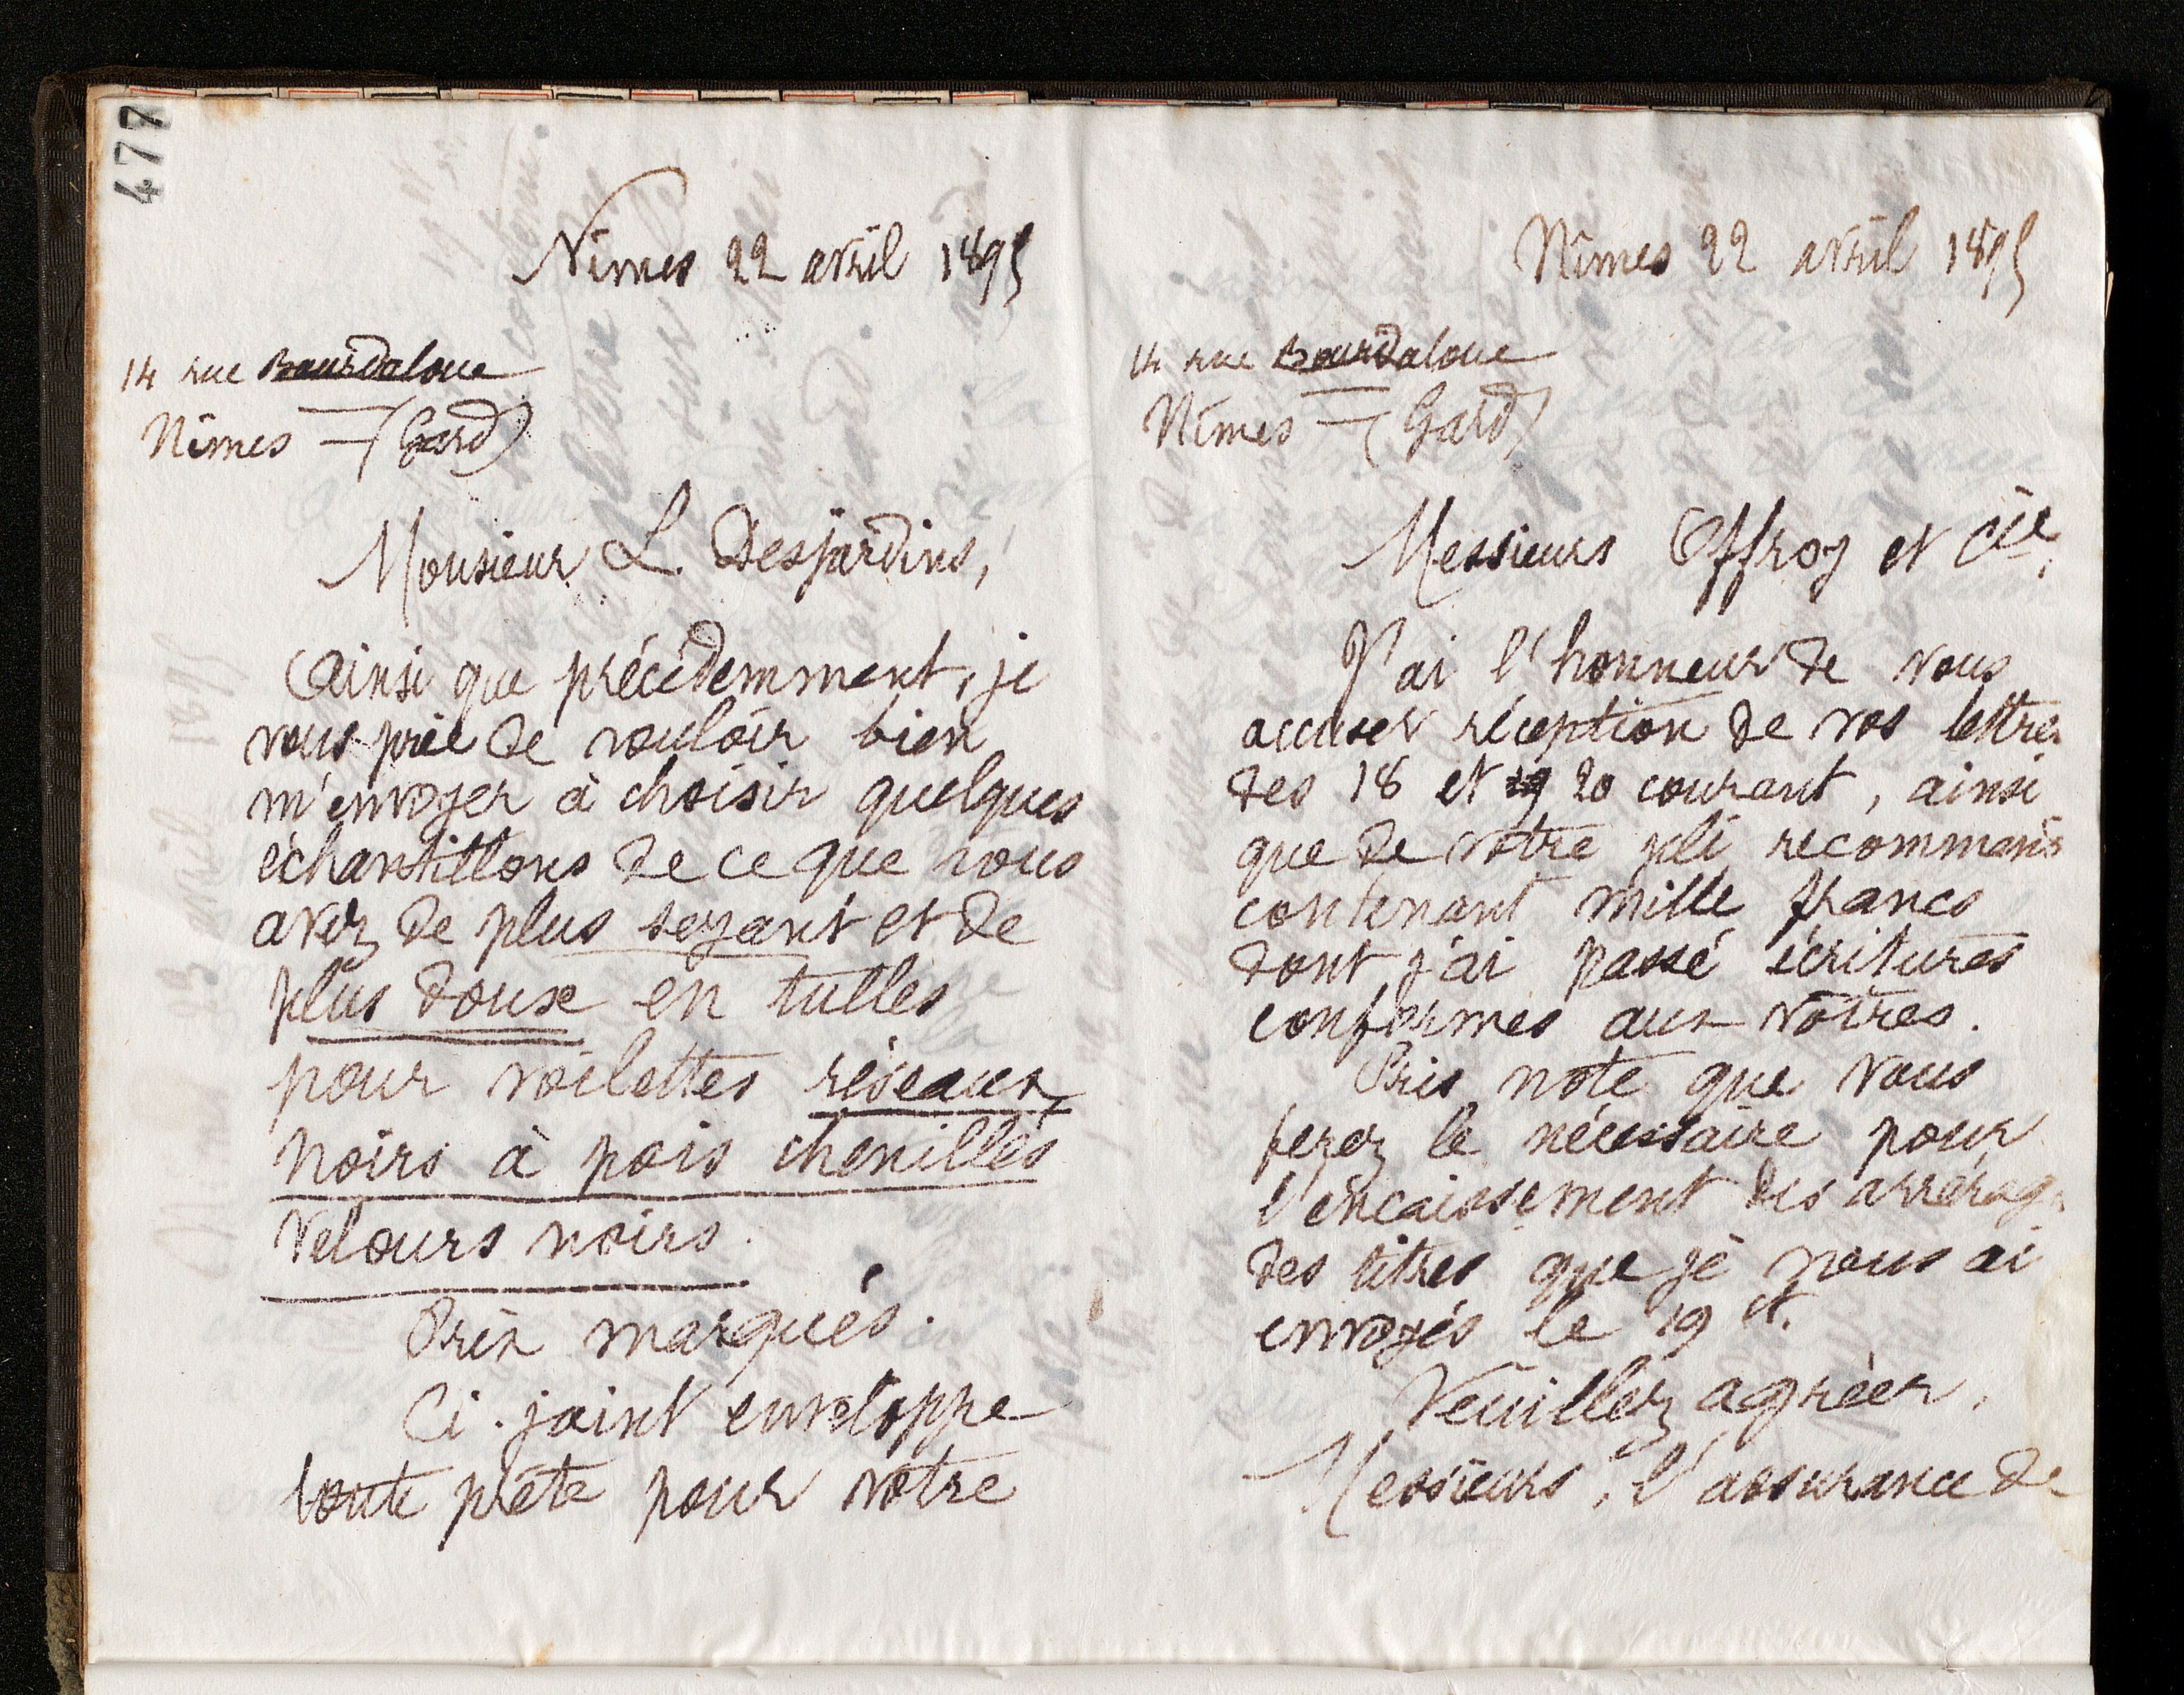 477
Nîmes 22 avril 1895
14 rue Bourdaloue
Nîmes — (Gard)
Monsieur L. Desjardins,
Ainsi que précédemment, je
vous prie de vouloir bien
m'envoyer à choisir quelques
échantillons de ce que vous
avez de plus seyant et de
plus doux en tulles
pour voilettes réseaux
noirs à pois chenillés
velours noirs.
Prix marqués.
Ci-joint enveloppe
toute prête pour votre
Nîmes 22 avril 1895
14 rue Bourdaloue
Nîmes — (Gard)
Messieurs Offroy et Cie,
J'ai l'honneur de vous
accuser réception de vos lettres
des 18 et 20 courant, ainsi
que de votre pli recommand
contenant mille francs
dont j'ai passé écritures
conformes aux vôtres.
Pris note que vous
ferez le nécessaire pour
l'encaissement des arrérag
des titres que je vous ai
envoyés le 19 ct.
Veuillez agréer,
Messieurs, l'assurance de